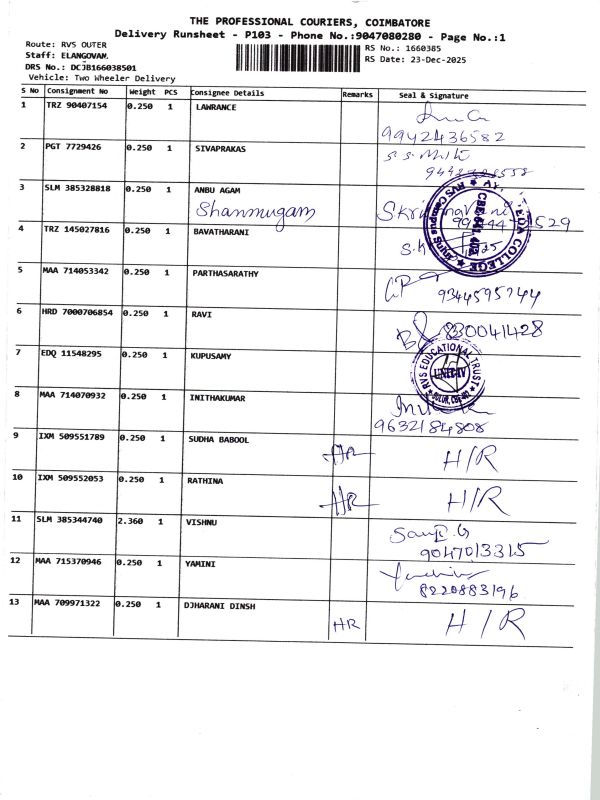 THE PROFESSIONAL COURIERS, COIMBATORE
Delivery Runsheet - P103 - Phone No.:9047080280 - Page No.:1
Route: RVS OUTER
Staff: ELANGOVAM.
DRS No.: DCJB166038501
Vehicle: Two Wheeler Delivery
RS No.: 1660385
RS Date: 23-Dec-2025
S No Consignment No Weight PCS Consignee Details Remarks Seal & Signature
1 TRZ 90407154 0.250 1 LAWRANCE
9942436582
2 PGT 7729426 0.250 1 SIVAPRAKAS
3 SLM 385328818 0.250 1 ANBU AGAM
Shanmugam
4 TRZ 145027816 0.250 1 BAVATHARANI
5 MAA 714053342 0.250 1 PARTHASARATHY
9344595744
6 HRD 7000706854 0.250 1 RAVI
7 EDQ 11548295 0.250 1 KUPUSAMY
RVS EDUCATIONAL TRUST
8 MAA 714070932 0.250 1 INITHAKUMAR
9632184808
9 IXM 509551789 0.250 1 SUDHA BABOOL HR H/R
10 IXM 509552053 0.250 1 RATHINA HR H/R
11 SLM 385344740 2.360 1 VISHNU
9047013315
12 MAA 715370946 0.250 1 YAMINI
8220883196
13 MAA 709971322 0.250 1 DJHARANI DINSH HR H/R